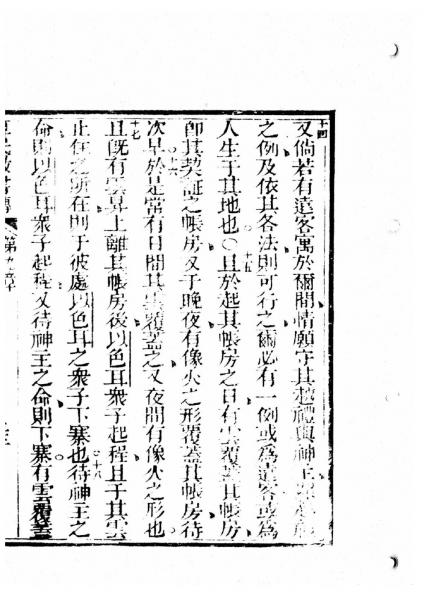 十四
又倘若有遠客寓於爾間情願守其越禮與神主
之例及依其各法則可行之爾必有一例或為遠客或為
人生于其地也〇十五且於起其帳房之日有雲覆蓋其帳房
即其契証之帳房又于晚夜有像火之形覆蓋其帳房待
次早〇十六於是常有日間其雲覆蓋之又夜間有像火之形也
十七
且既有雲昇上離其帳房後以色耳眾子起程且于其雲
止住之所在則于彼處以色耳之眾子下寨也〇十八待神主之
命則以色耳眾子起程又待神主之命則下寨有雲覆蓋